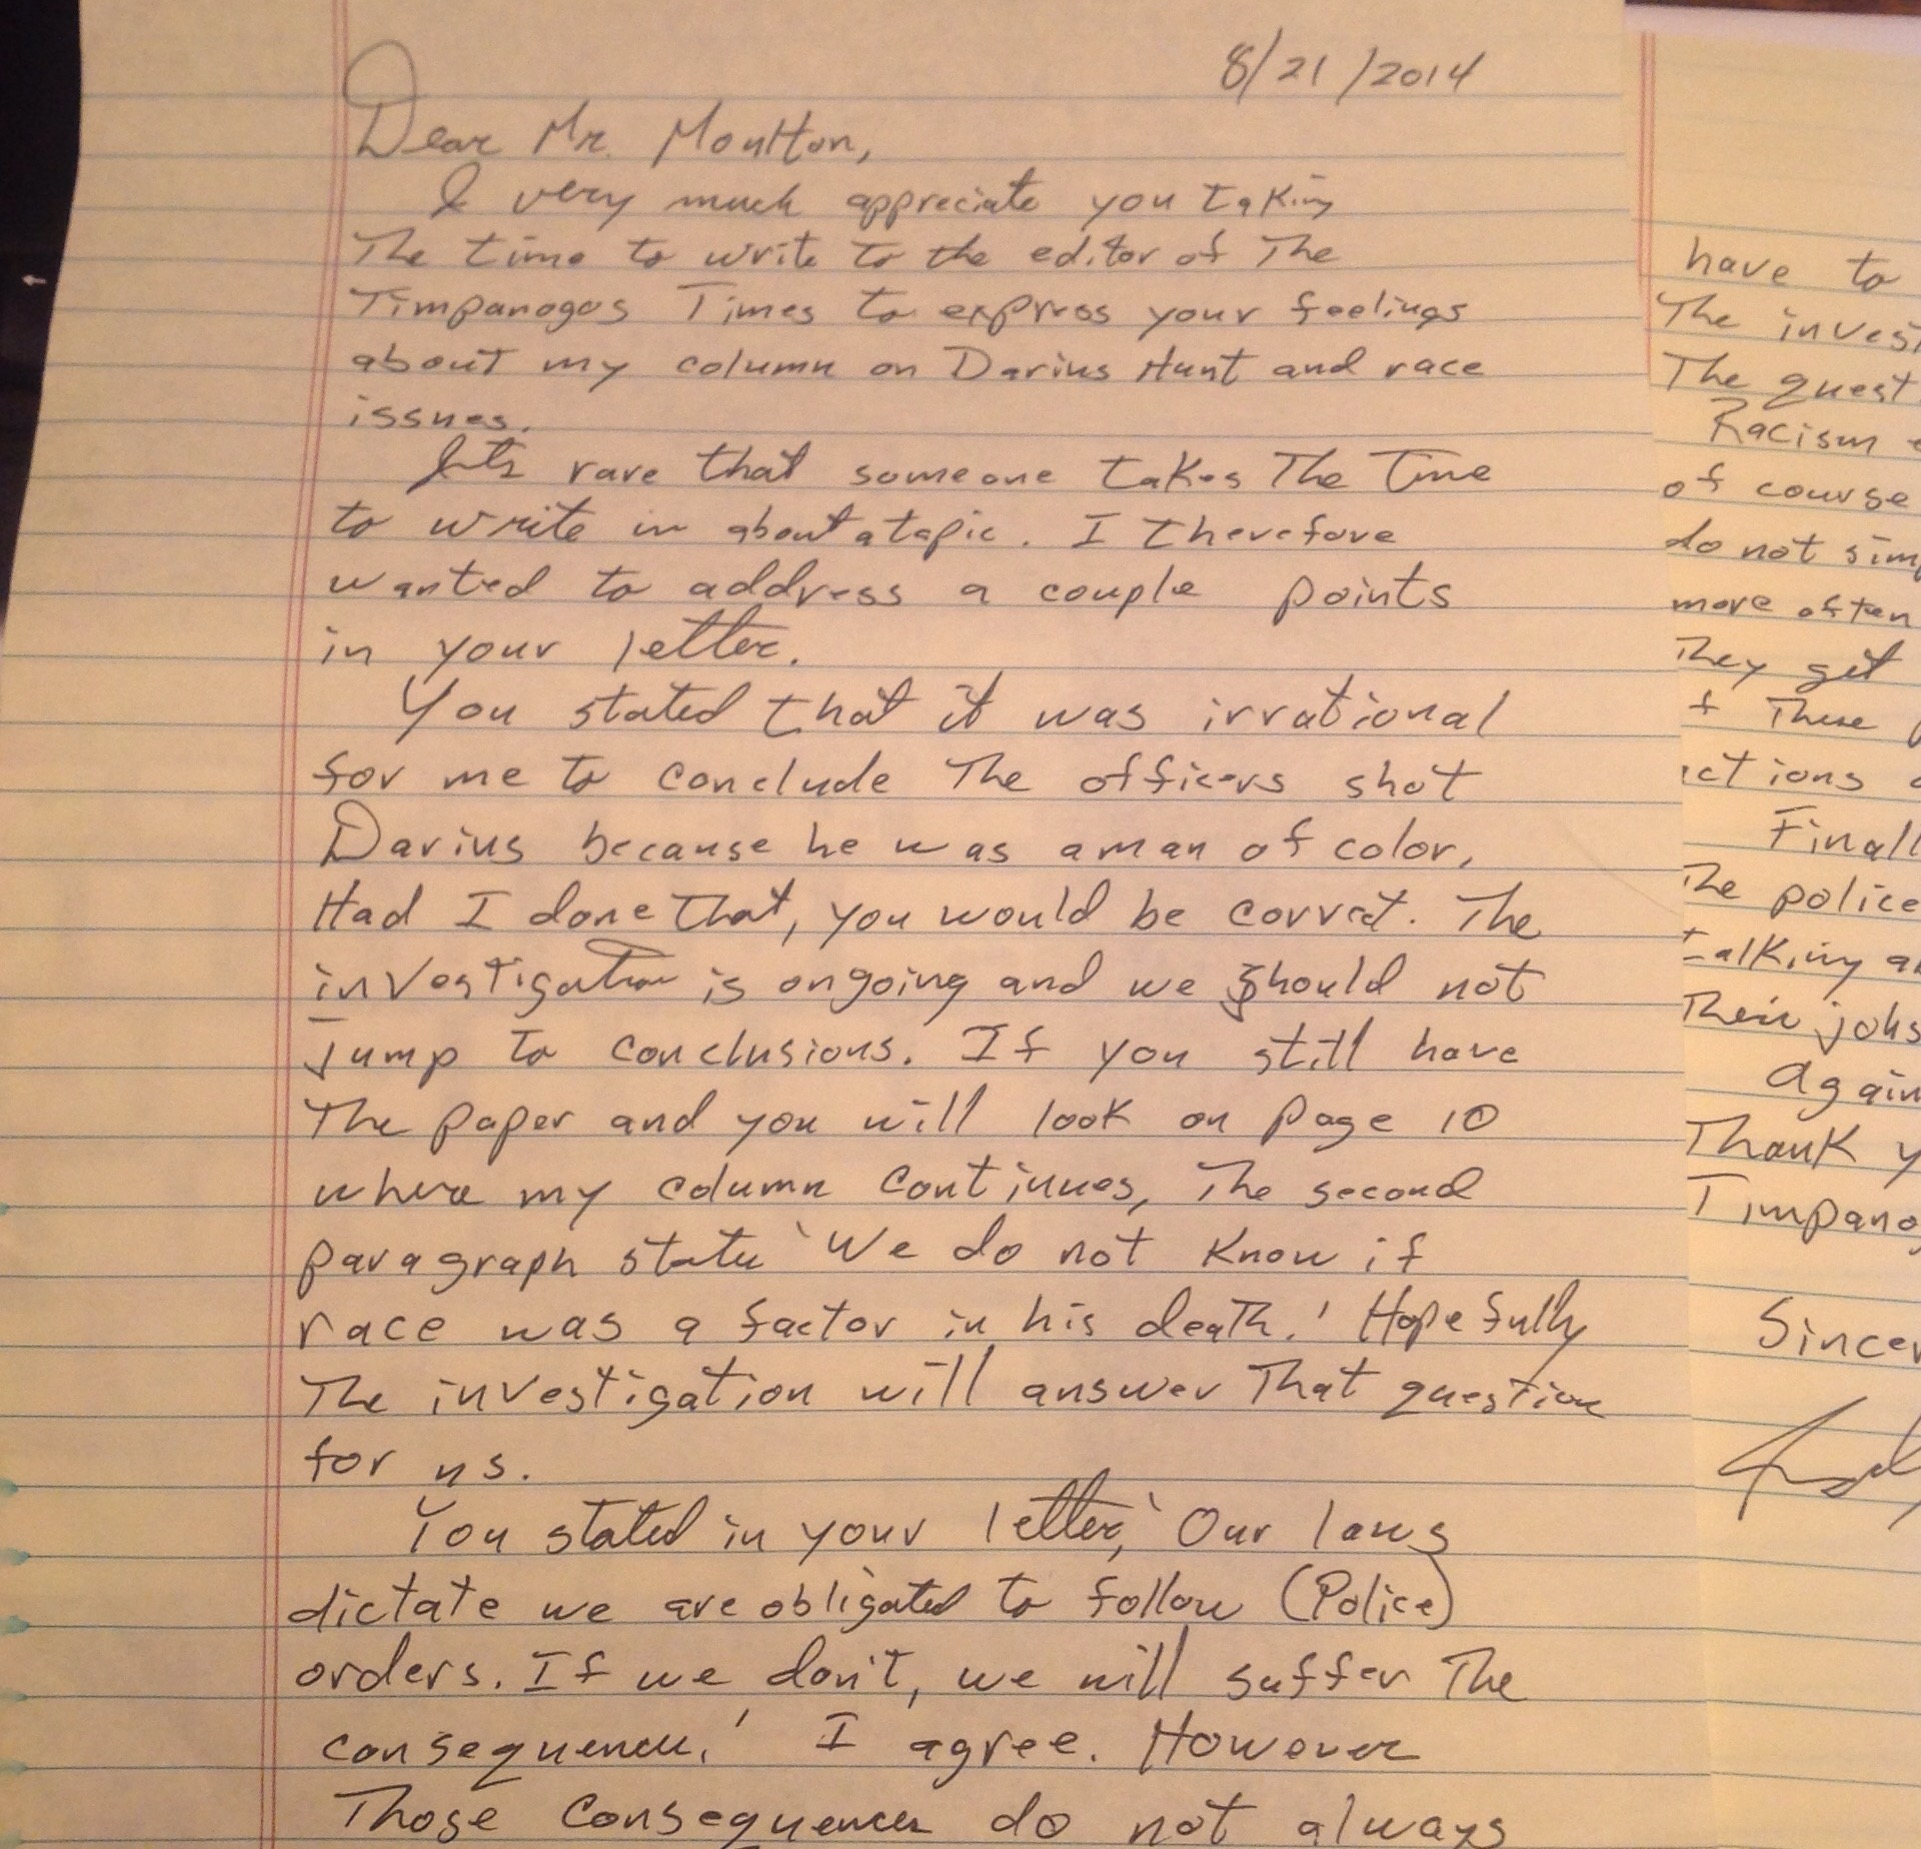 8/21/2014
Dear Mr. Moulton,
I very much appreciate you taking
The time to write to the editor of The
Timpanogos Times to express your feelings
about my column on Darius Hunt and race
issues.
It's rare that someone takes The Time
to write in about a topic. I therefore
wanted to address a couple points
in your letter.
You stated that it was irrational
for me to conclude The officers shot
Darius because he was a man of color.
Had I done That, you would be correct. The
investigation is ongoing and we should not
Jump to conclusions. If you still have
The paper and you will look on page 10
where my column continues, The second
paragraph state 'We do not know if
race was a factor in his death.' Hopefully
The investigation will answer That question
for us.
You stated in your letter, 'Our laws
dictate we are obligated to follow (Police)
orders. If we don't, we will suffer The
consequence.' I agree. However
Those Consequences do not always
have to
The invest
The quest
Racism
of course
do not simp
more often
They get
f These
ctions
Finall
The police
talking
Their jobs
Again
Thank y
Timpanog
Sincer